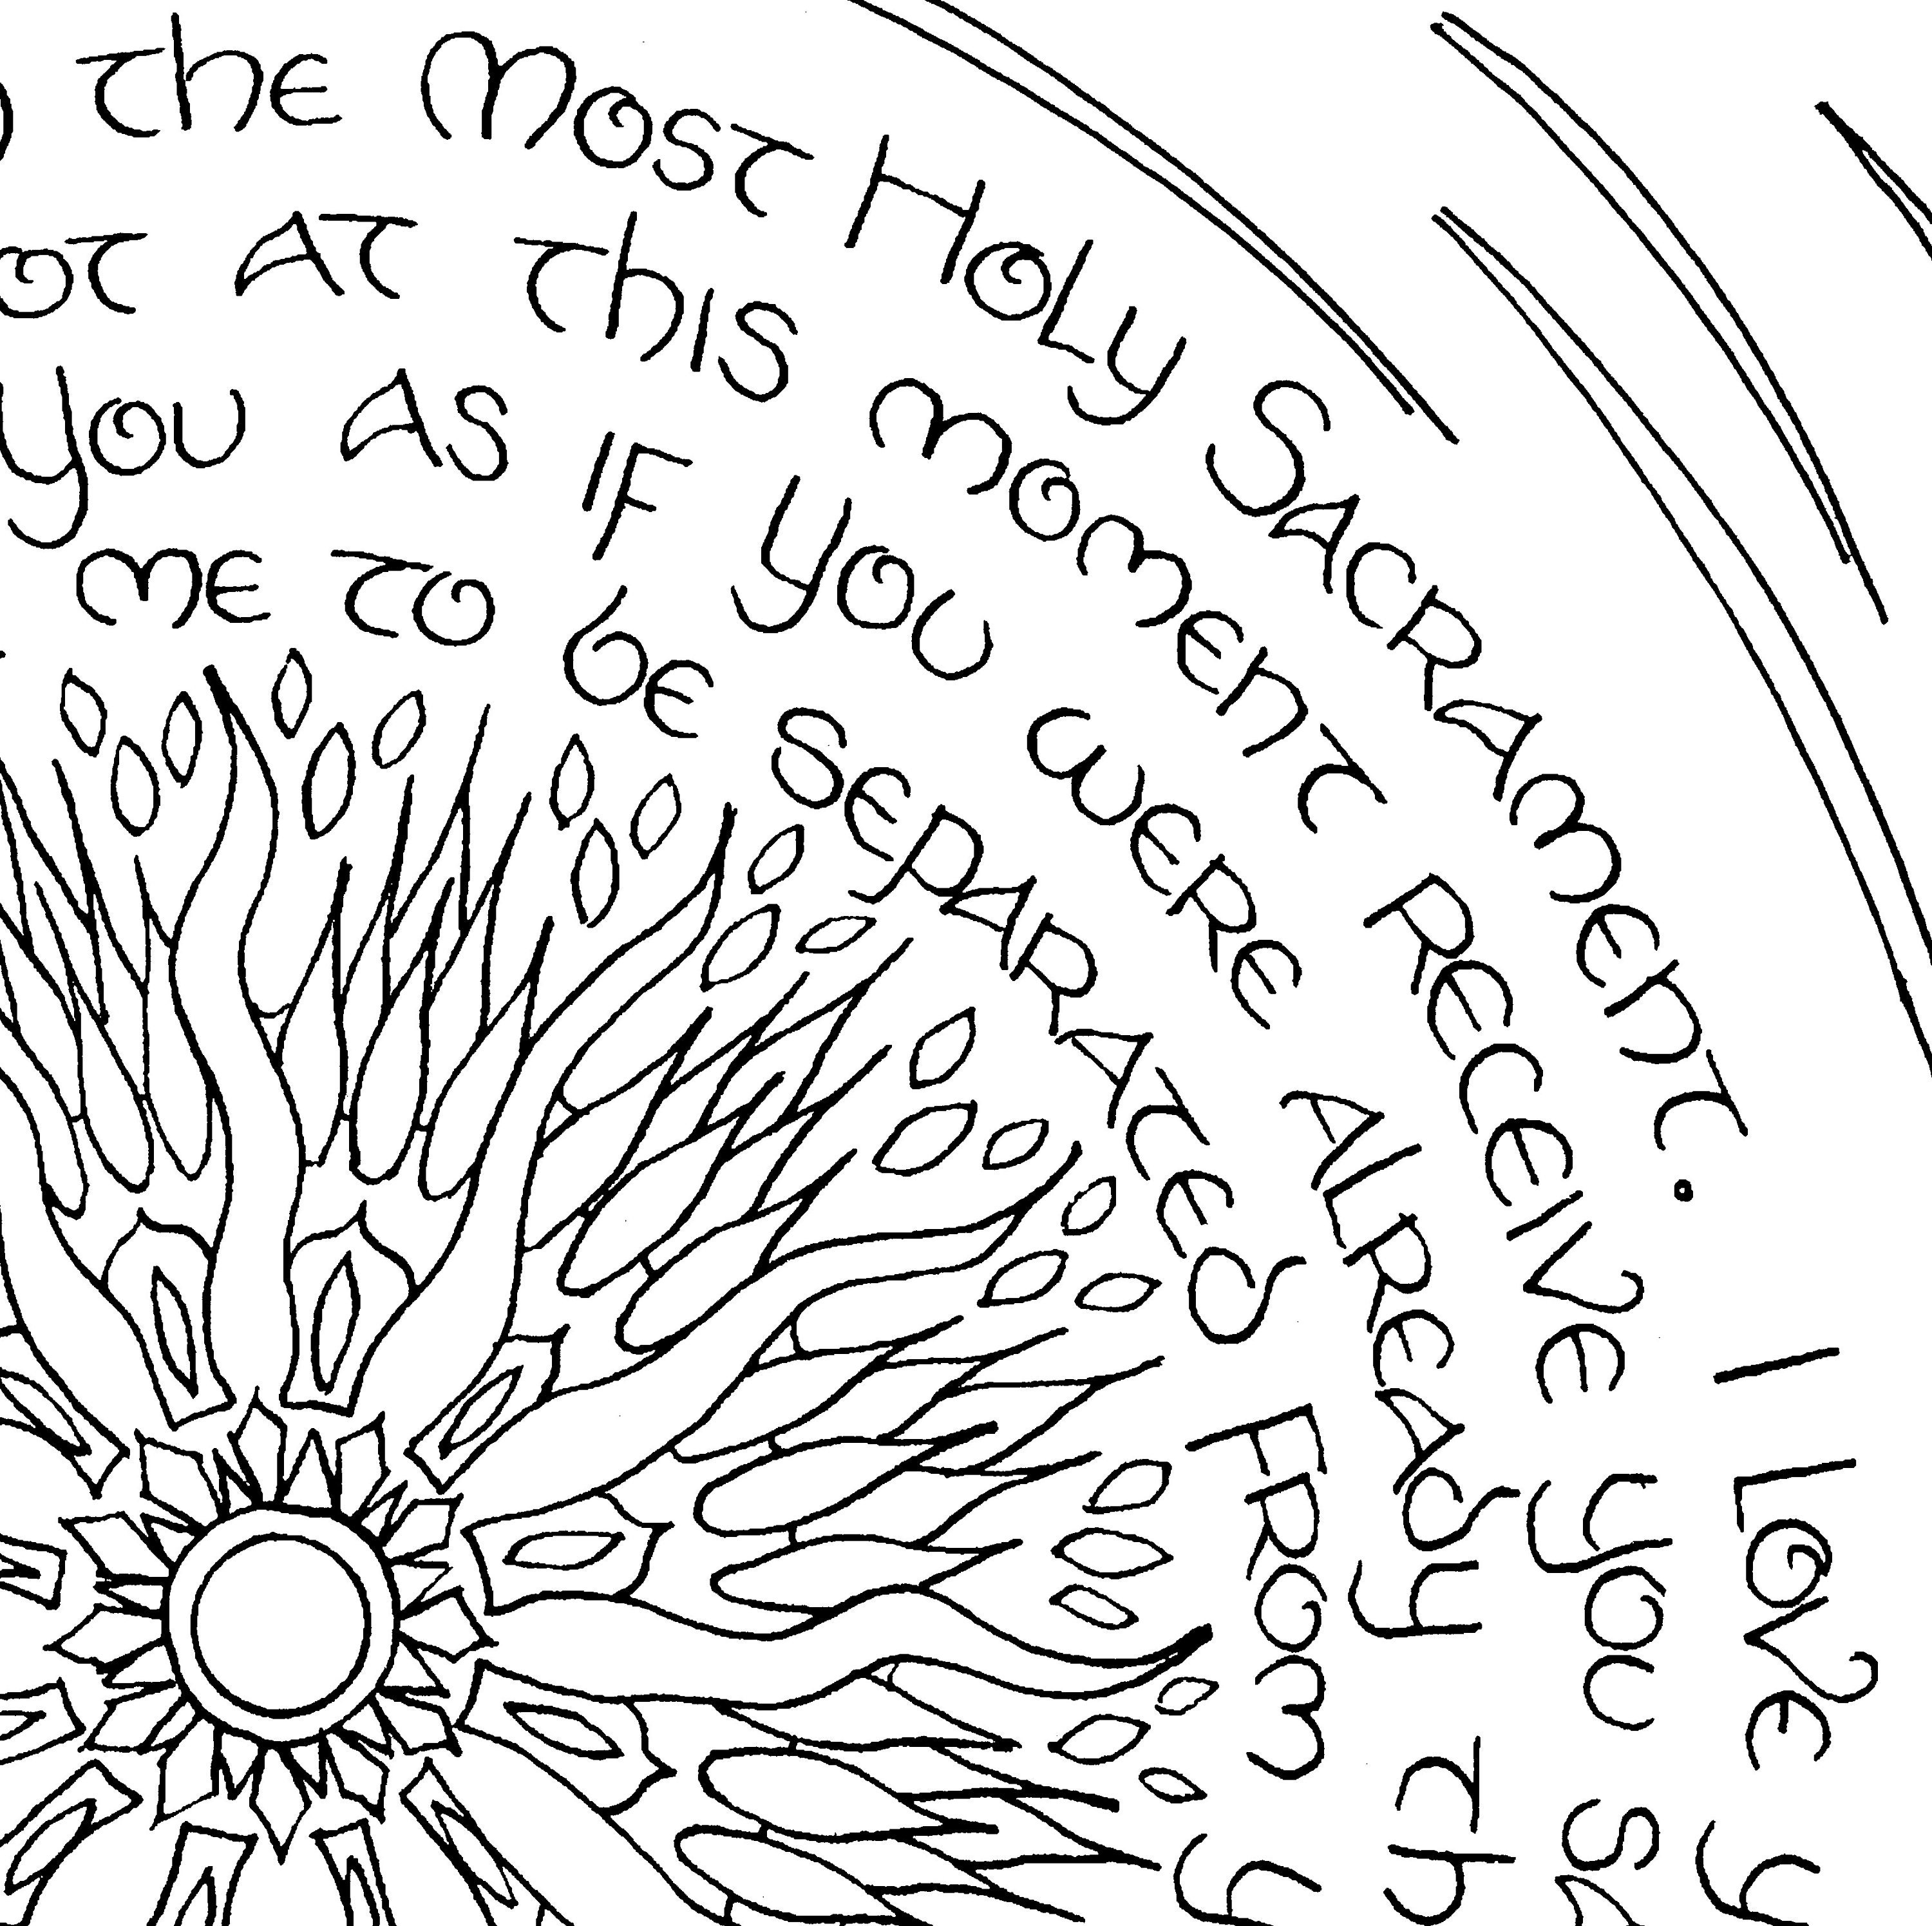 The Most Holy Sacrament. I love
ot at this moment receive you
you as if you were already th
me to be separated from